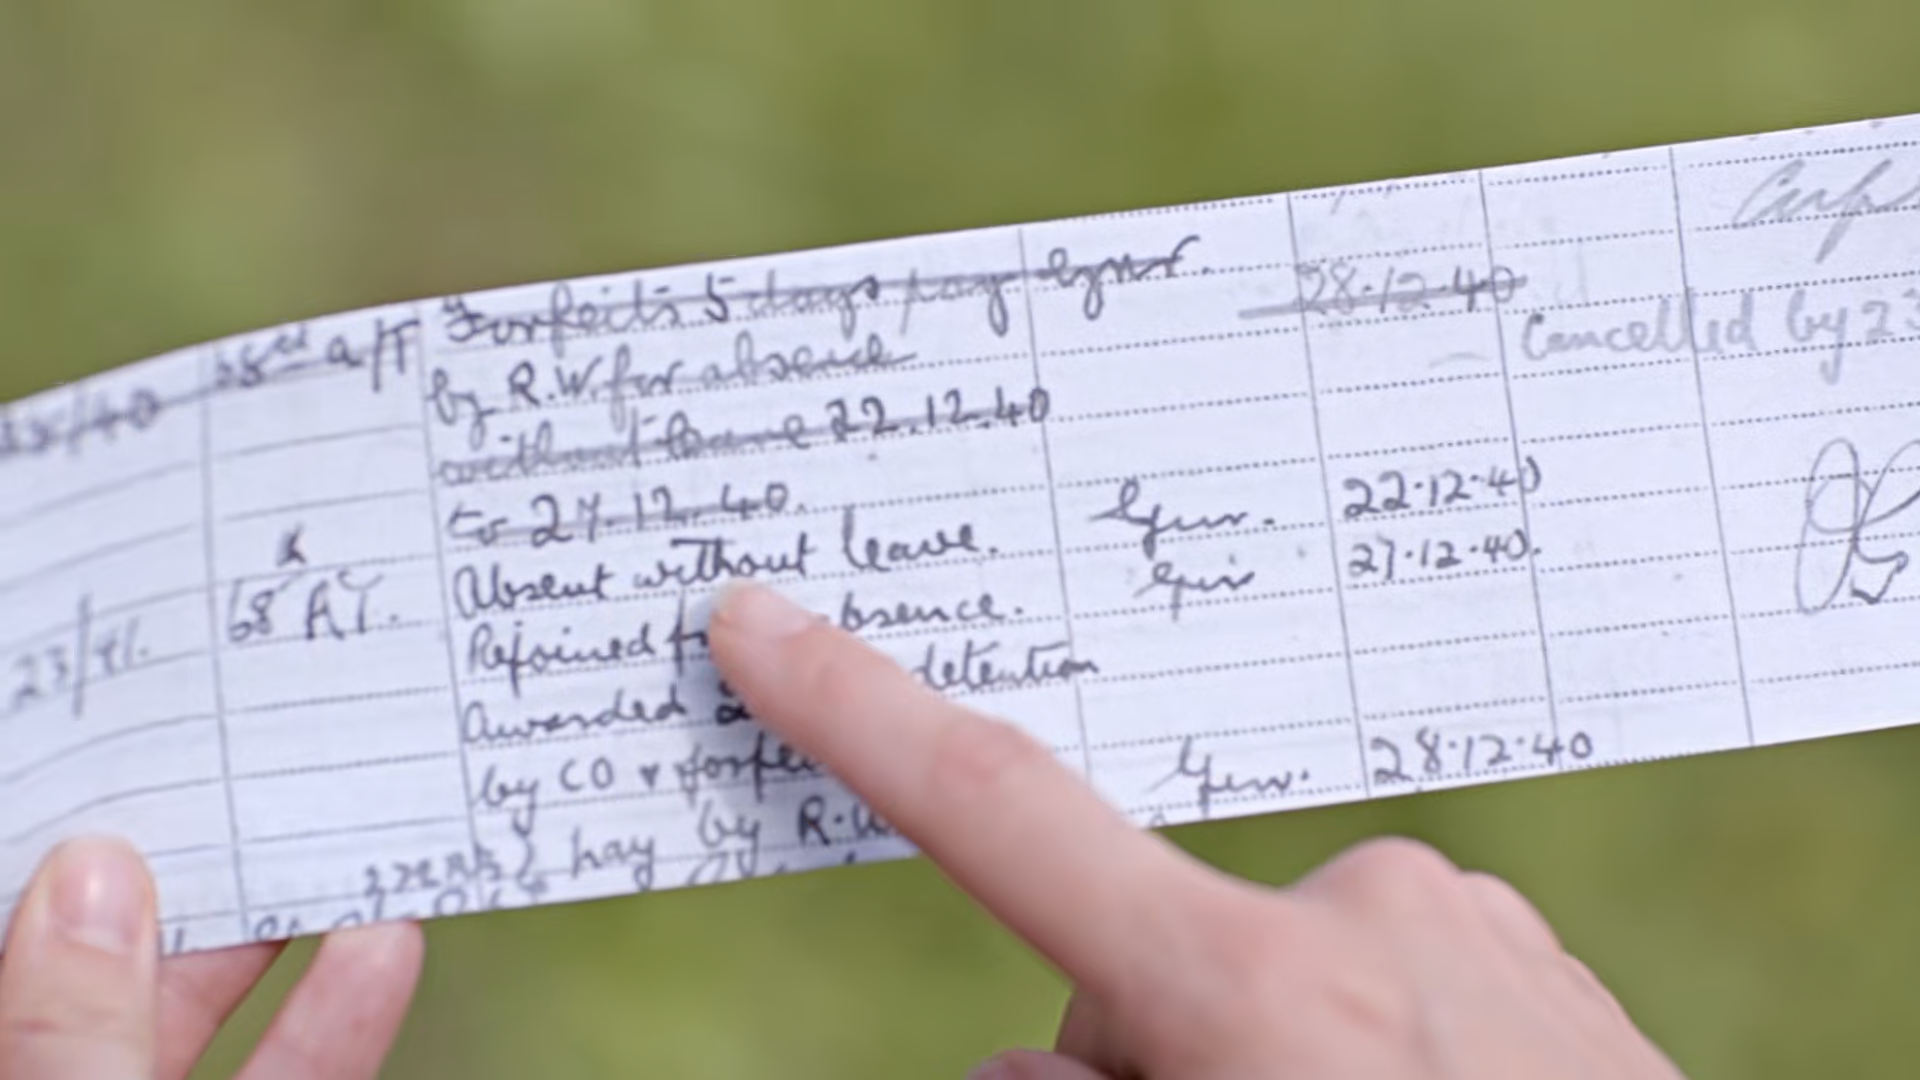 Forfeits 5 days pay Gnr. 28.12.40
by R.W. for absence Cancelled by 23
without leave 22.12.40
to 27.12.40.
Absent without leave. Gnr. 22.12.40
68 AT. Rejoined absence. Gnr 27.12.40.
23/41. Awarded detention
by CO Gnr. 28.12.40
pay by